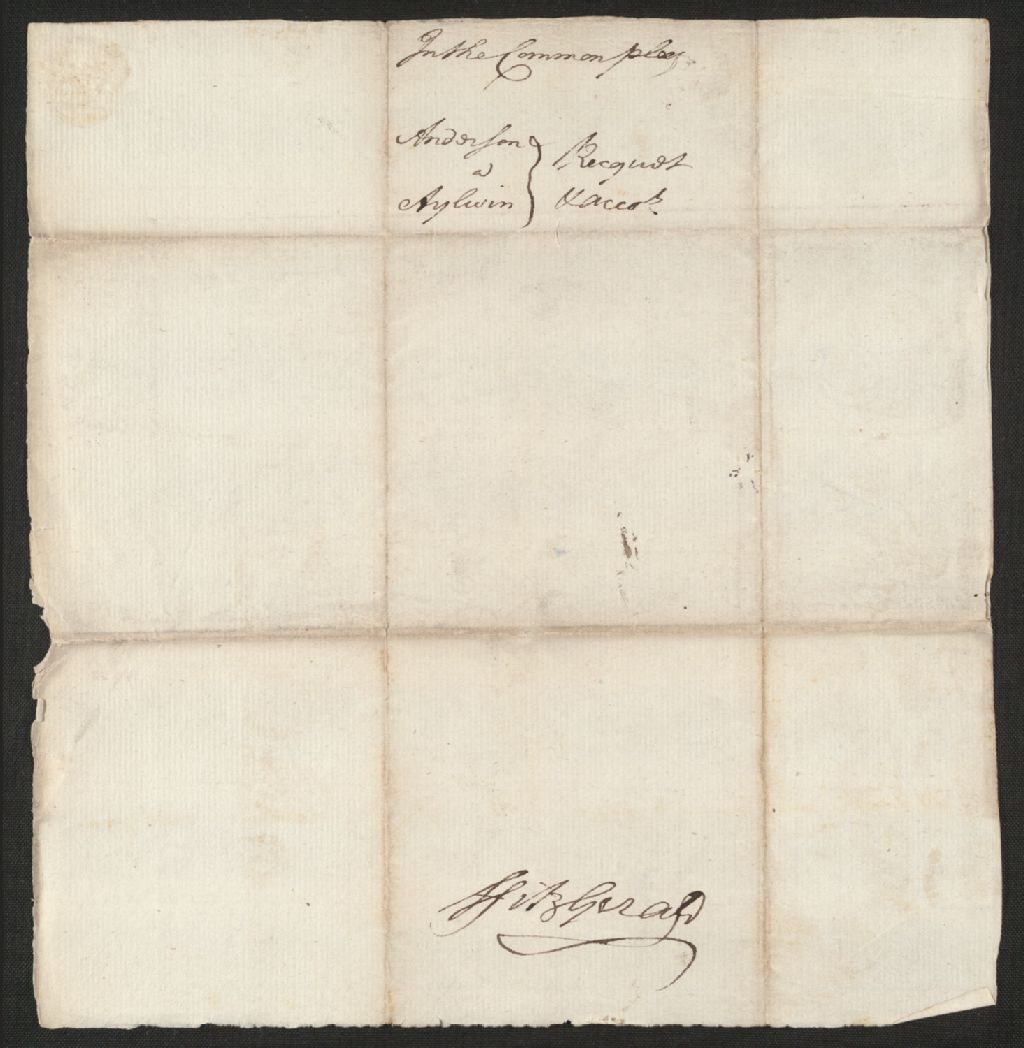 In the Common pleas
Anderson
a
Aylwin
Recquest
& accot
ffitzGerald